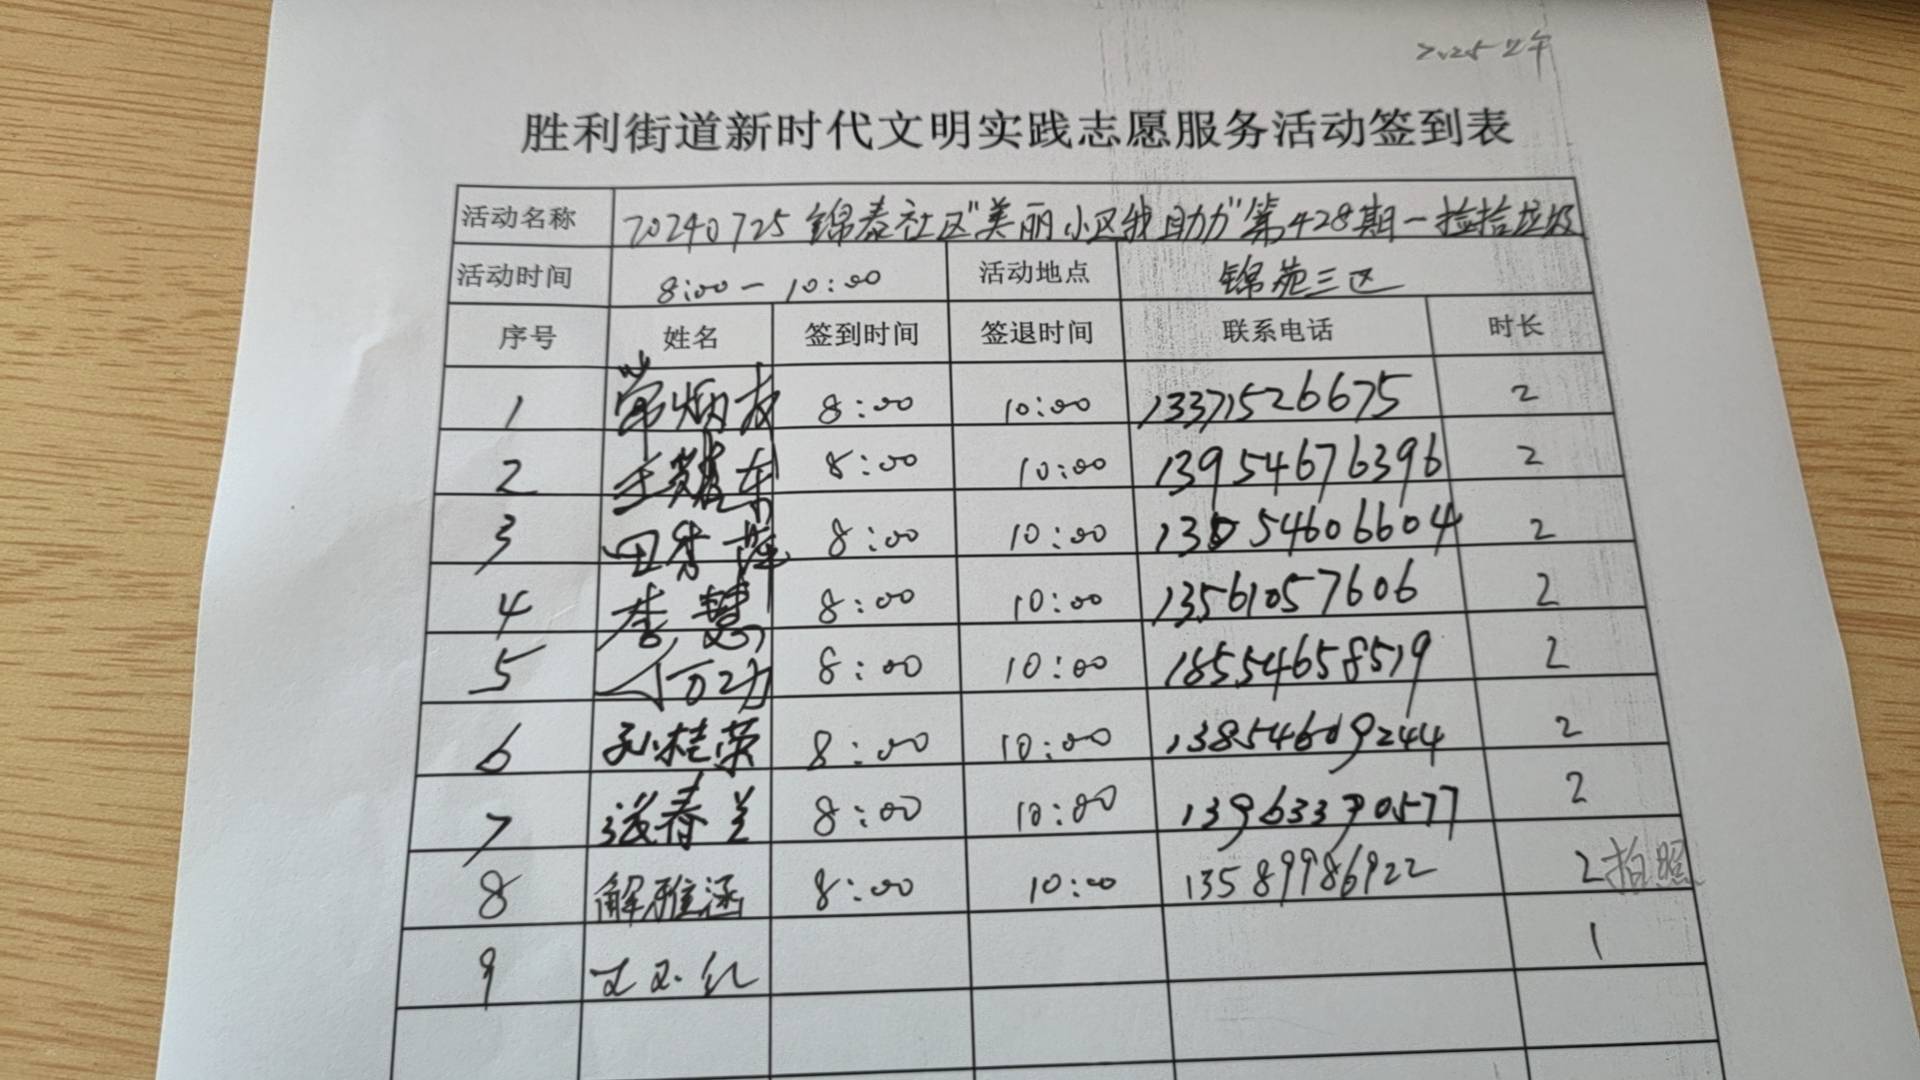 胜利街道新时代文明实践志愿服务活动签到表
活动名称 20240725 锦泰社区"美丽小区我助力"第428期一捡拾垃圾
活动时间 8:00-10:00 活动地点 锦苑三区
序号 姓名 签到时间 签退时间 联系电话 时长
1 常炳友 8:00 10:00 13371526675 2
2 8:00 10:00 13954676396 2
3 田秀萍 8:00 10:00 2
4 李慧 8:00 10:00 13561057606 2
5 8:00 10:00 18554658519 2
6 孙桂荣 8:00 10:00 13854609244 2
7 春兰 8:00 10:00 13963390577 2
8 解雅涵 8:00 10:00 13589986922 2 拍照
9 1